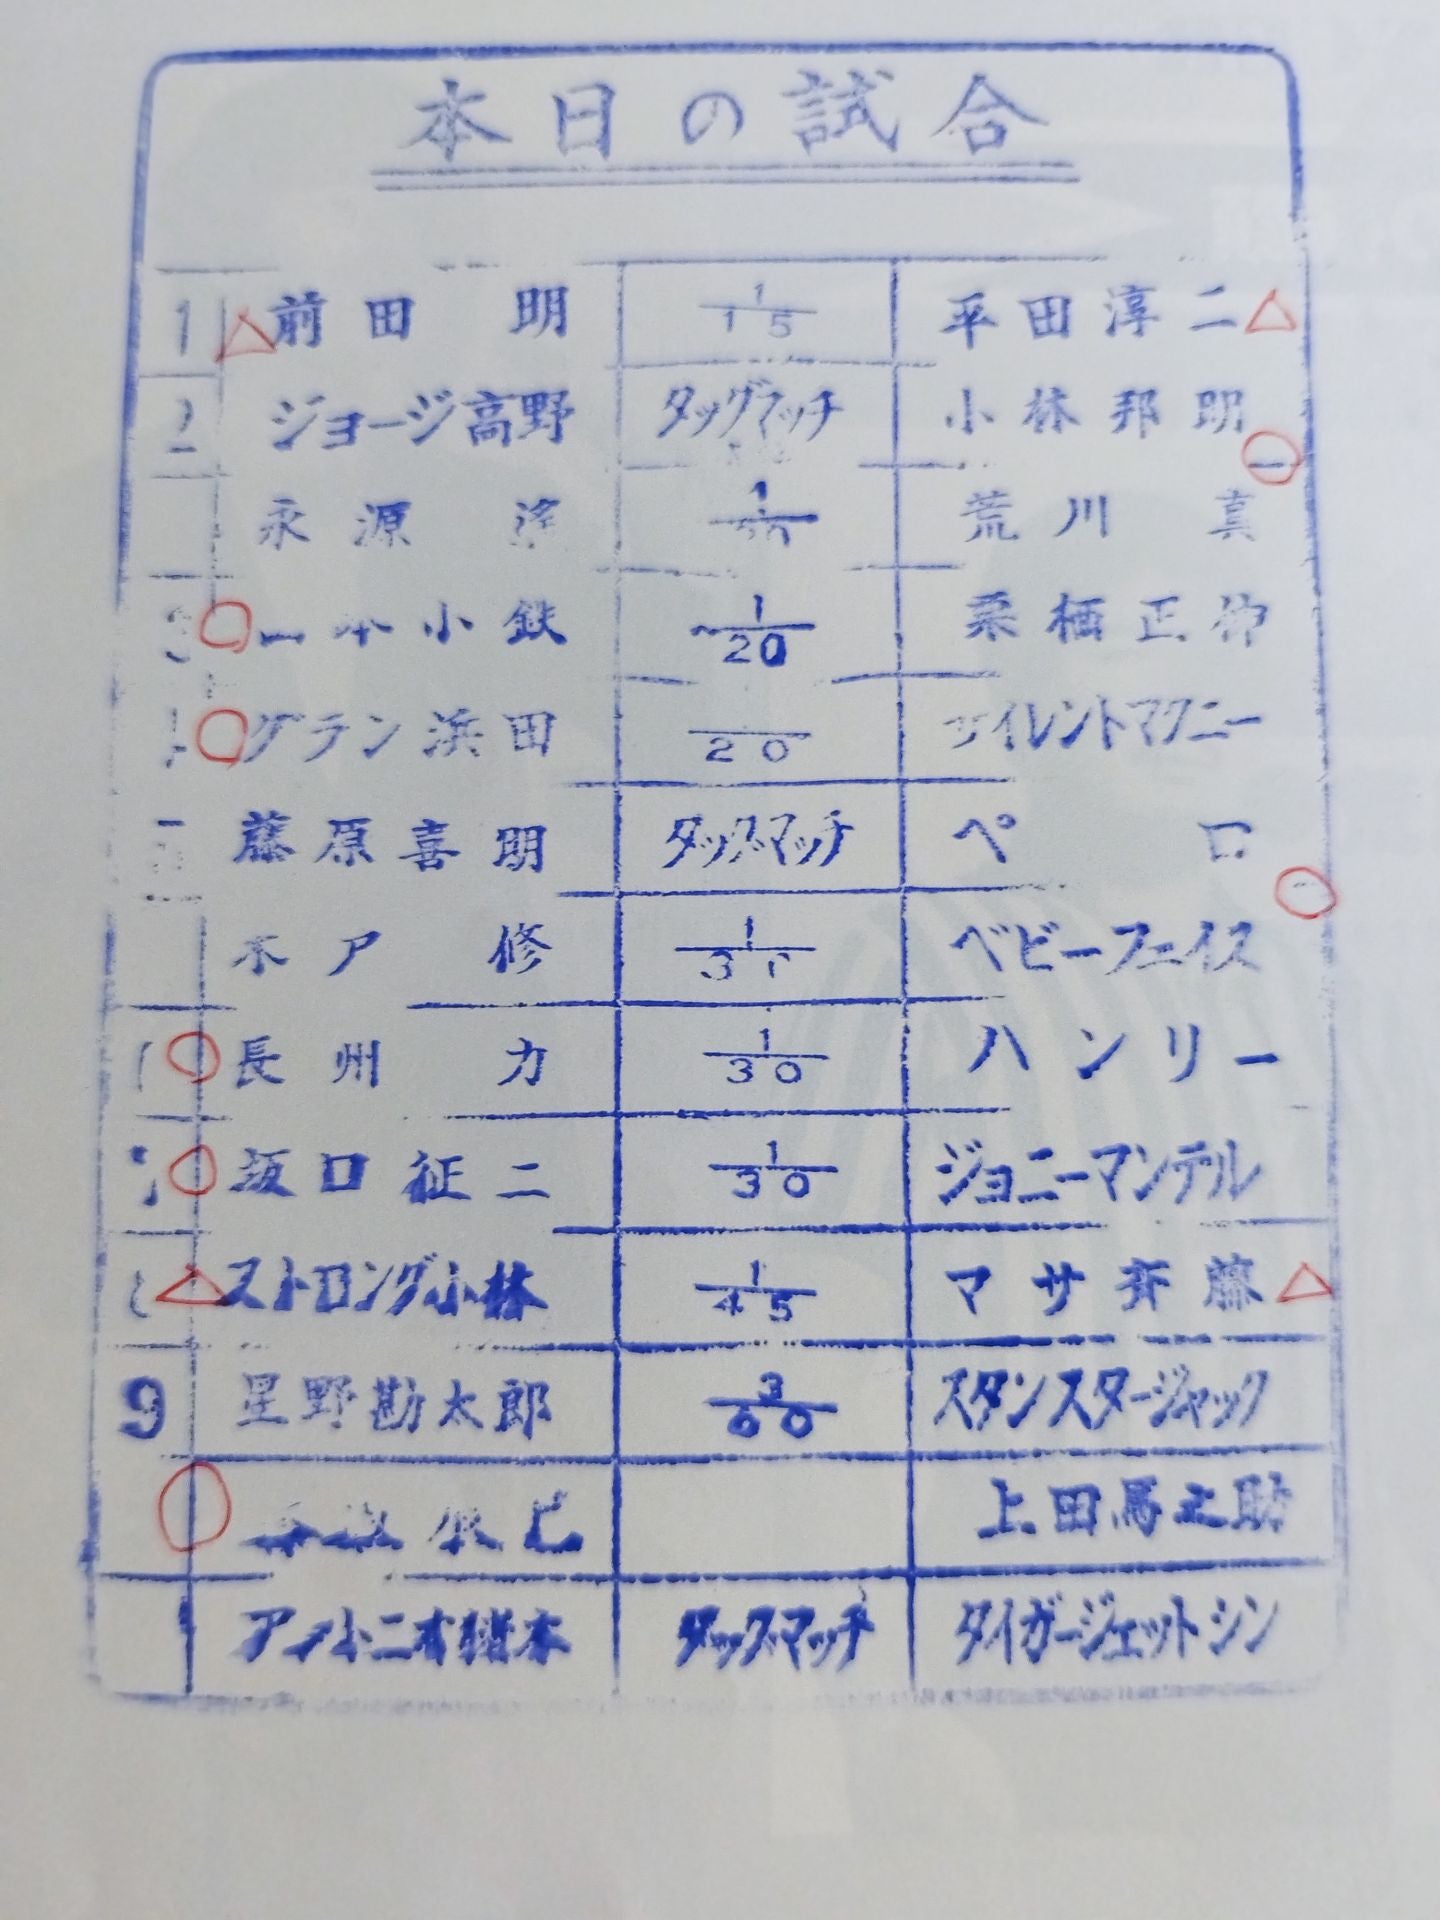 本日の試合
1 前田 明 1/15 平田淳二
2 ジョージ高野 タッグマッチ 小林邦明
永源 1/ 荒川 真
小鉄 1/20 栗栖正伸
グラン浜田 20 サイレントマクニー
藤原喜明 タッグマッチ ペロ
木戸 修 1/3 ベビーフェイス
長州 力 1/30 ハンリー
坂口征二 1/30 ジョニーマンテル
ストロング小林 1/45 マサ斉藤
9 星野勘太郎 3/60 スタンスタージャック
上田馬之助
アントニオ猪木 タッグマッチ タイガージェットシン